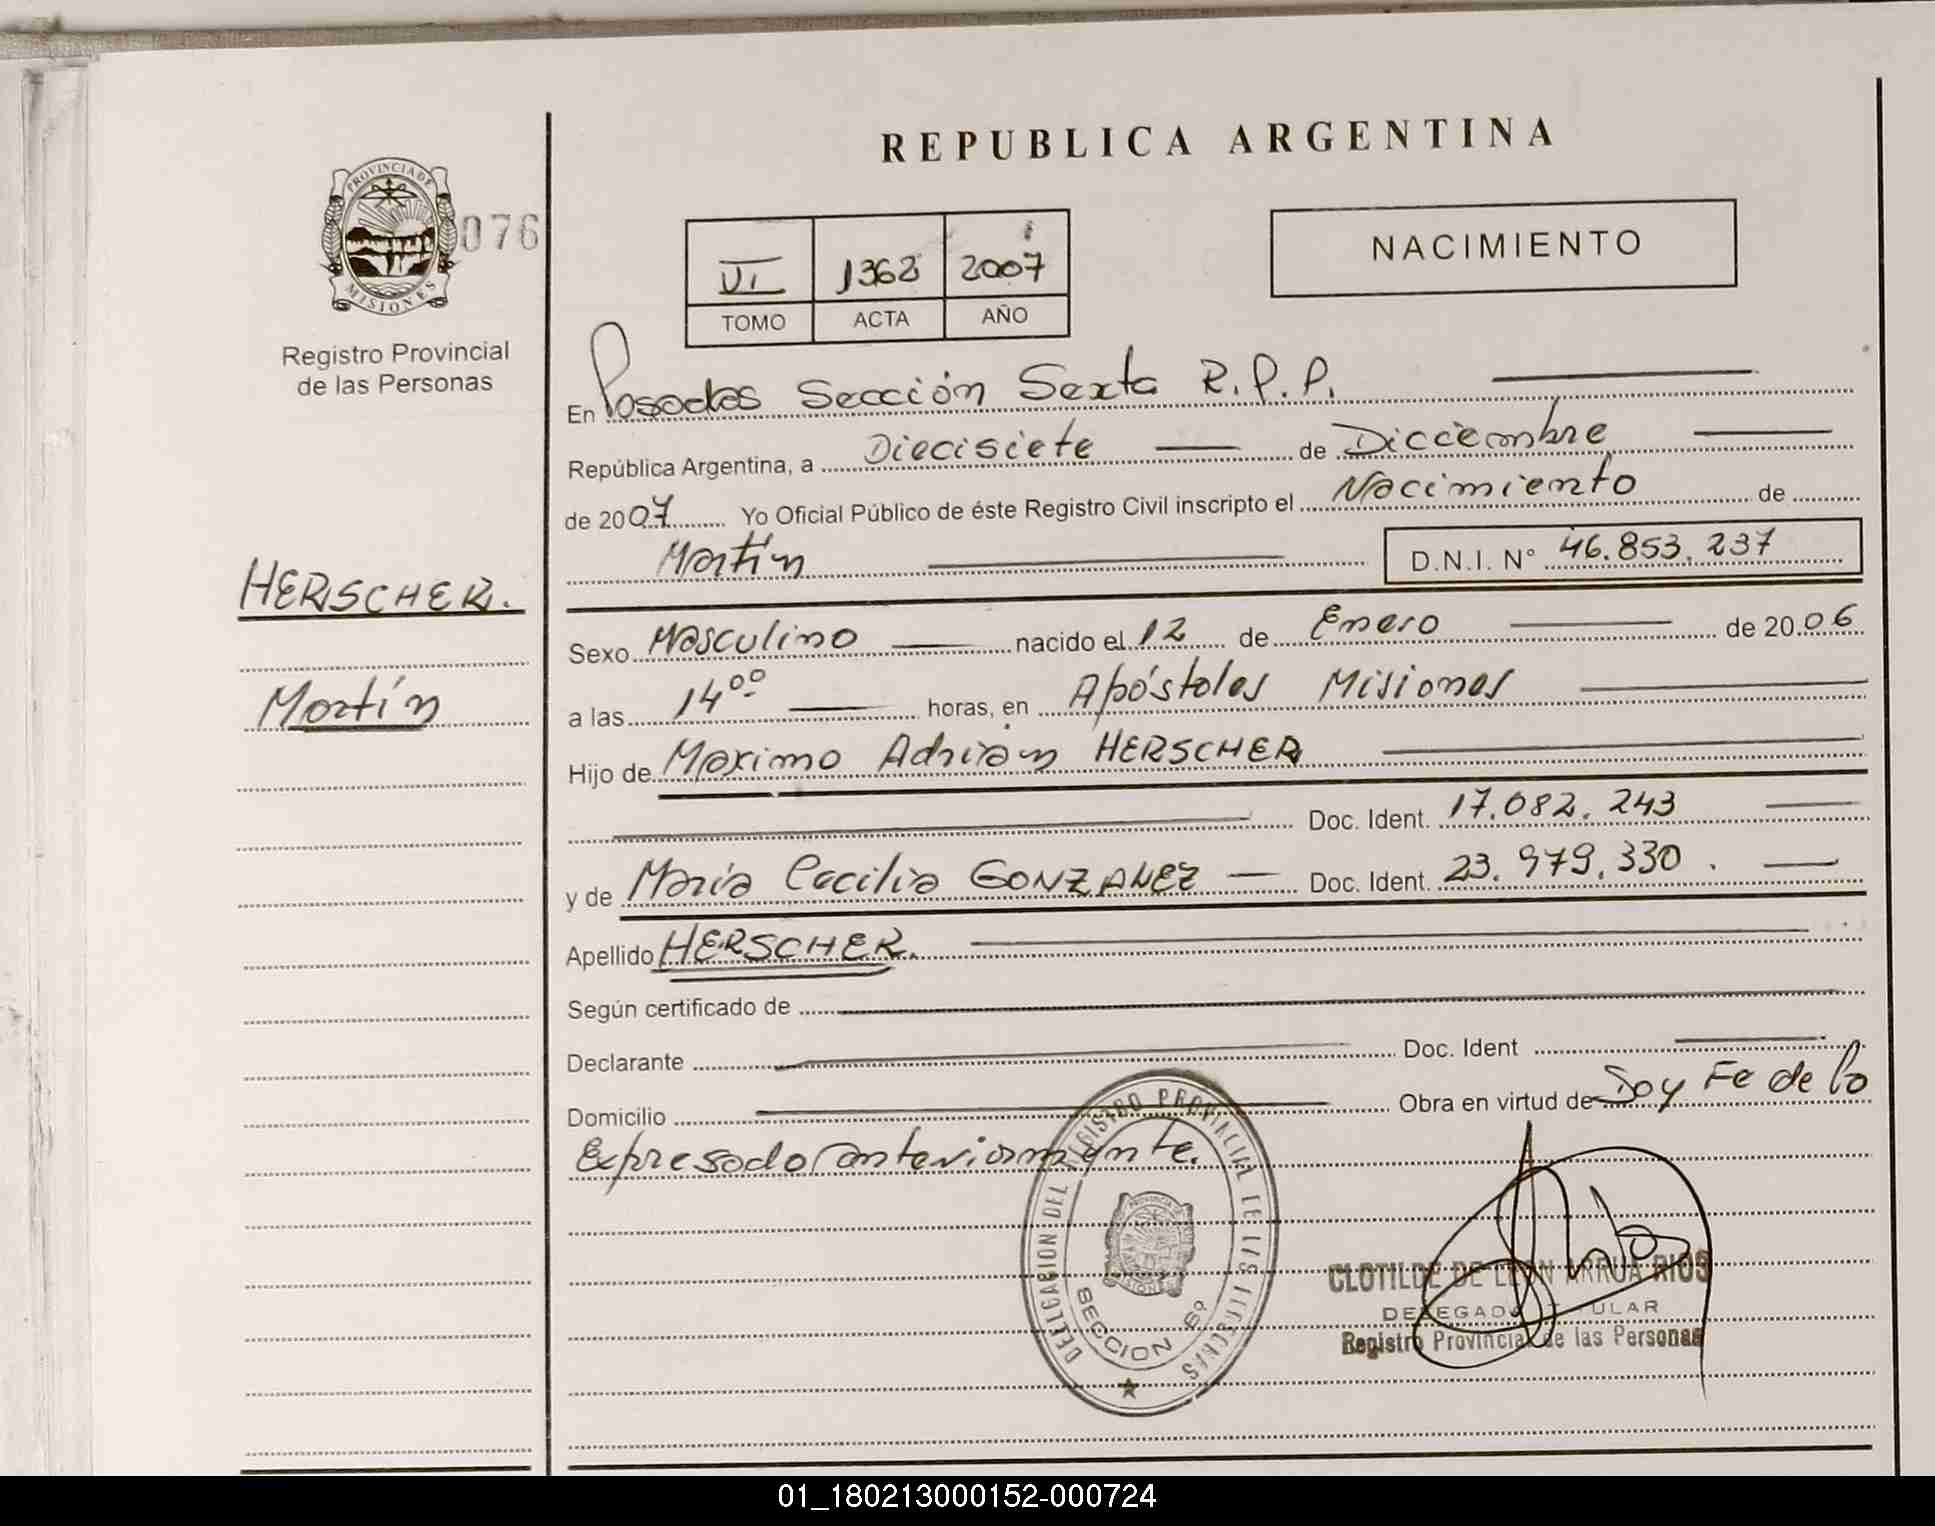 REPUBLICA ARGENTINA
PROVINCIA DE
MISIONES
076
Registro Provincial
de las Personas
VI 1362 2007
TOMO ACTA AÑO
NACIMIENTO
En Posadas Sección Sexta R.P.P.
República Argentina, a Diecisiete de Diciembre
de 2007 Yo Oficial Público de éste Registro Civil inscripto el Nacimiento de
Martín D.N.I. N° 46.853.237
HERSCHER.
Martín
Sexo Masculino nacido el 12 de Enero de 2006
a las 14⁰⁰ horas, en Apóstoles Misiones
Hijo de Maximo Adrian HERSCHER
Doc. Ident. 17.082.243
y de María Cecilia GONZALEZ Doc. Ident. 23.979.330.
Apellido HERSCHER.
Según certificado de
Declarante Doc. Ident
Domicilio Obra en virtud de Doy Fe de lo
Expresado anteriormente.
DELEGACION DEL REGISTRO PROVINCIAL DE LAS PERSONAS
SECCION 6º
CLOTILDE DE LEON ARRUA RIOS
DELEGADA TITULAR
Registro Provincial de las Personas
01_180213000152-000724